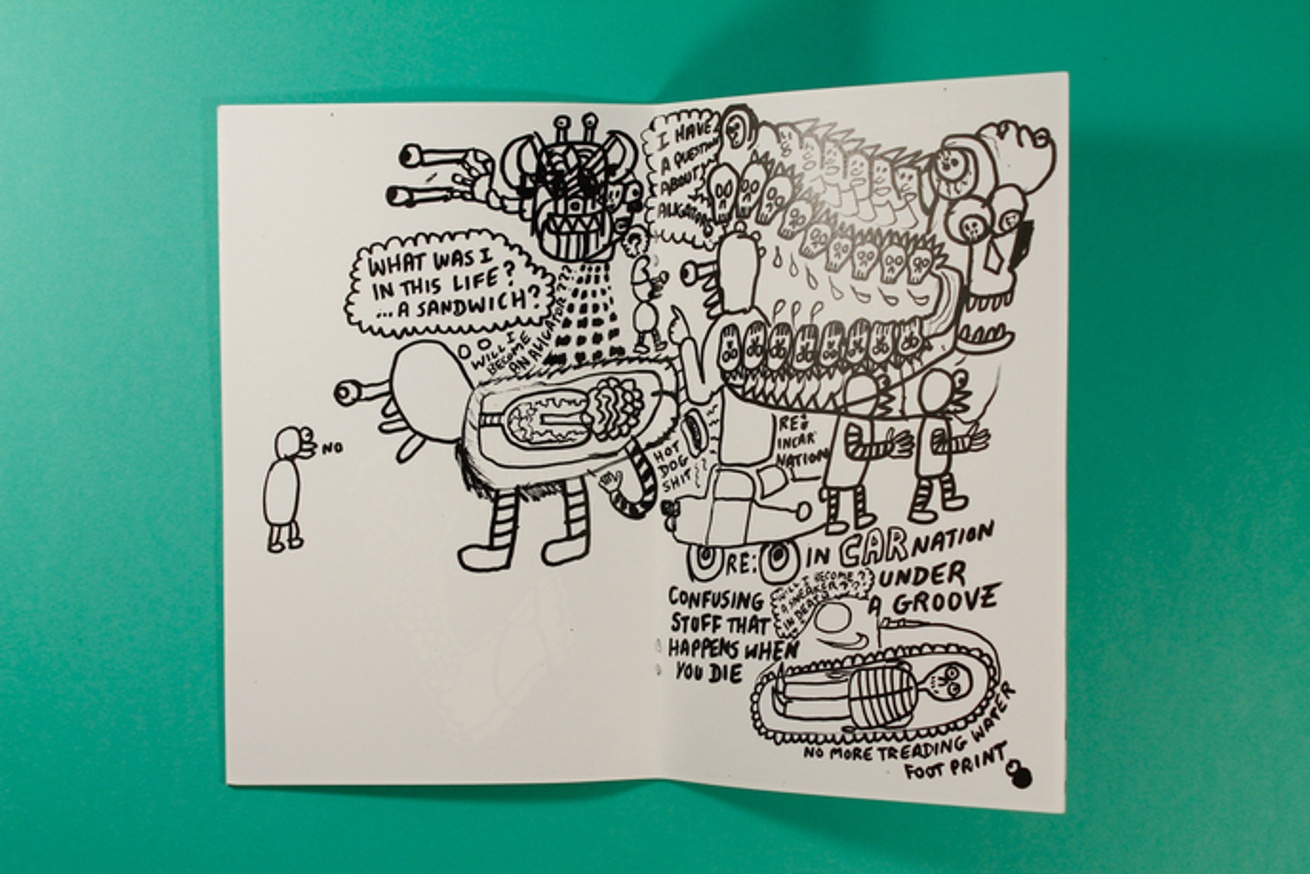 WHAT WAS I
IN THIS LIFE?
...A SANDWICH?
WILL I
BECOME
AN ALIGATOR???
NO
I HAVE
A QUESTION
ABOUT
ALIGATORS
HOT
DOG
SHIT
RE:
INCAR
NATION
RE:
IN CARNATION
UNDER
A GROOVE
CONFUSING
STUFF THAT
HAPPENS WHEN
YOU DIE
WILL I BECOME
A SNEAKER??
IN DEATH
NO MORE TREADING WATER
FOOT PRINT